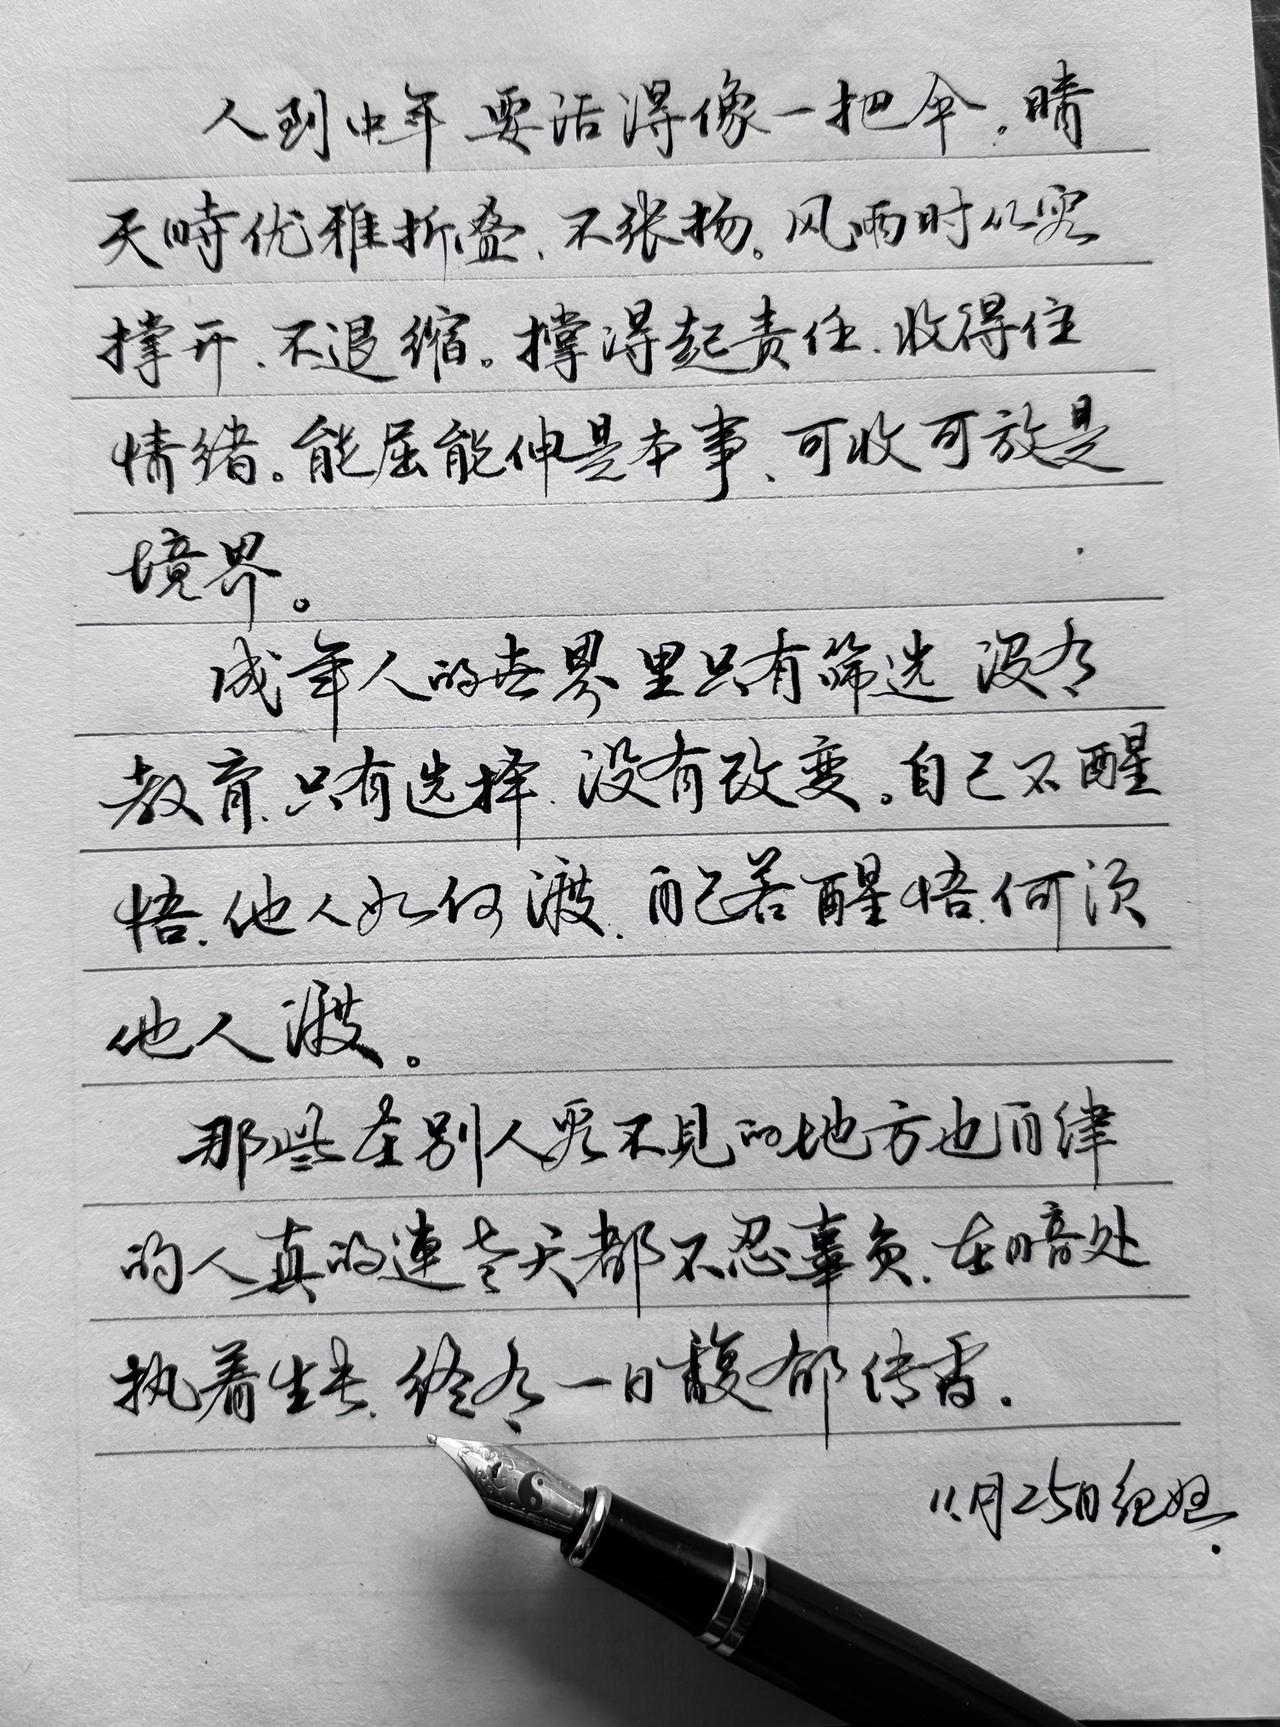 人到中年要活得像一把伞。晴
天時优雅折叠、不张扬。风雨时从容
撑开、不退缩。撑得起责任、收得住
情绪。能屈能伸是本事、可收可放是
境界。
成年人的世界里只有筛选没有
教育、只有选择、没有改变。自己不醒
悟、他人如何渡、自己若醒悟、何须
他人渡。
那些在别人看不見的地方也自律
的人真的連老天都不忍辜负、在暗处
执着生长、终有一日馥郁传香.
11月25日